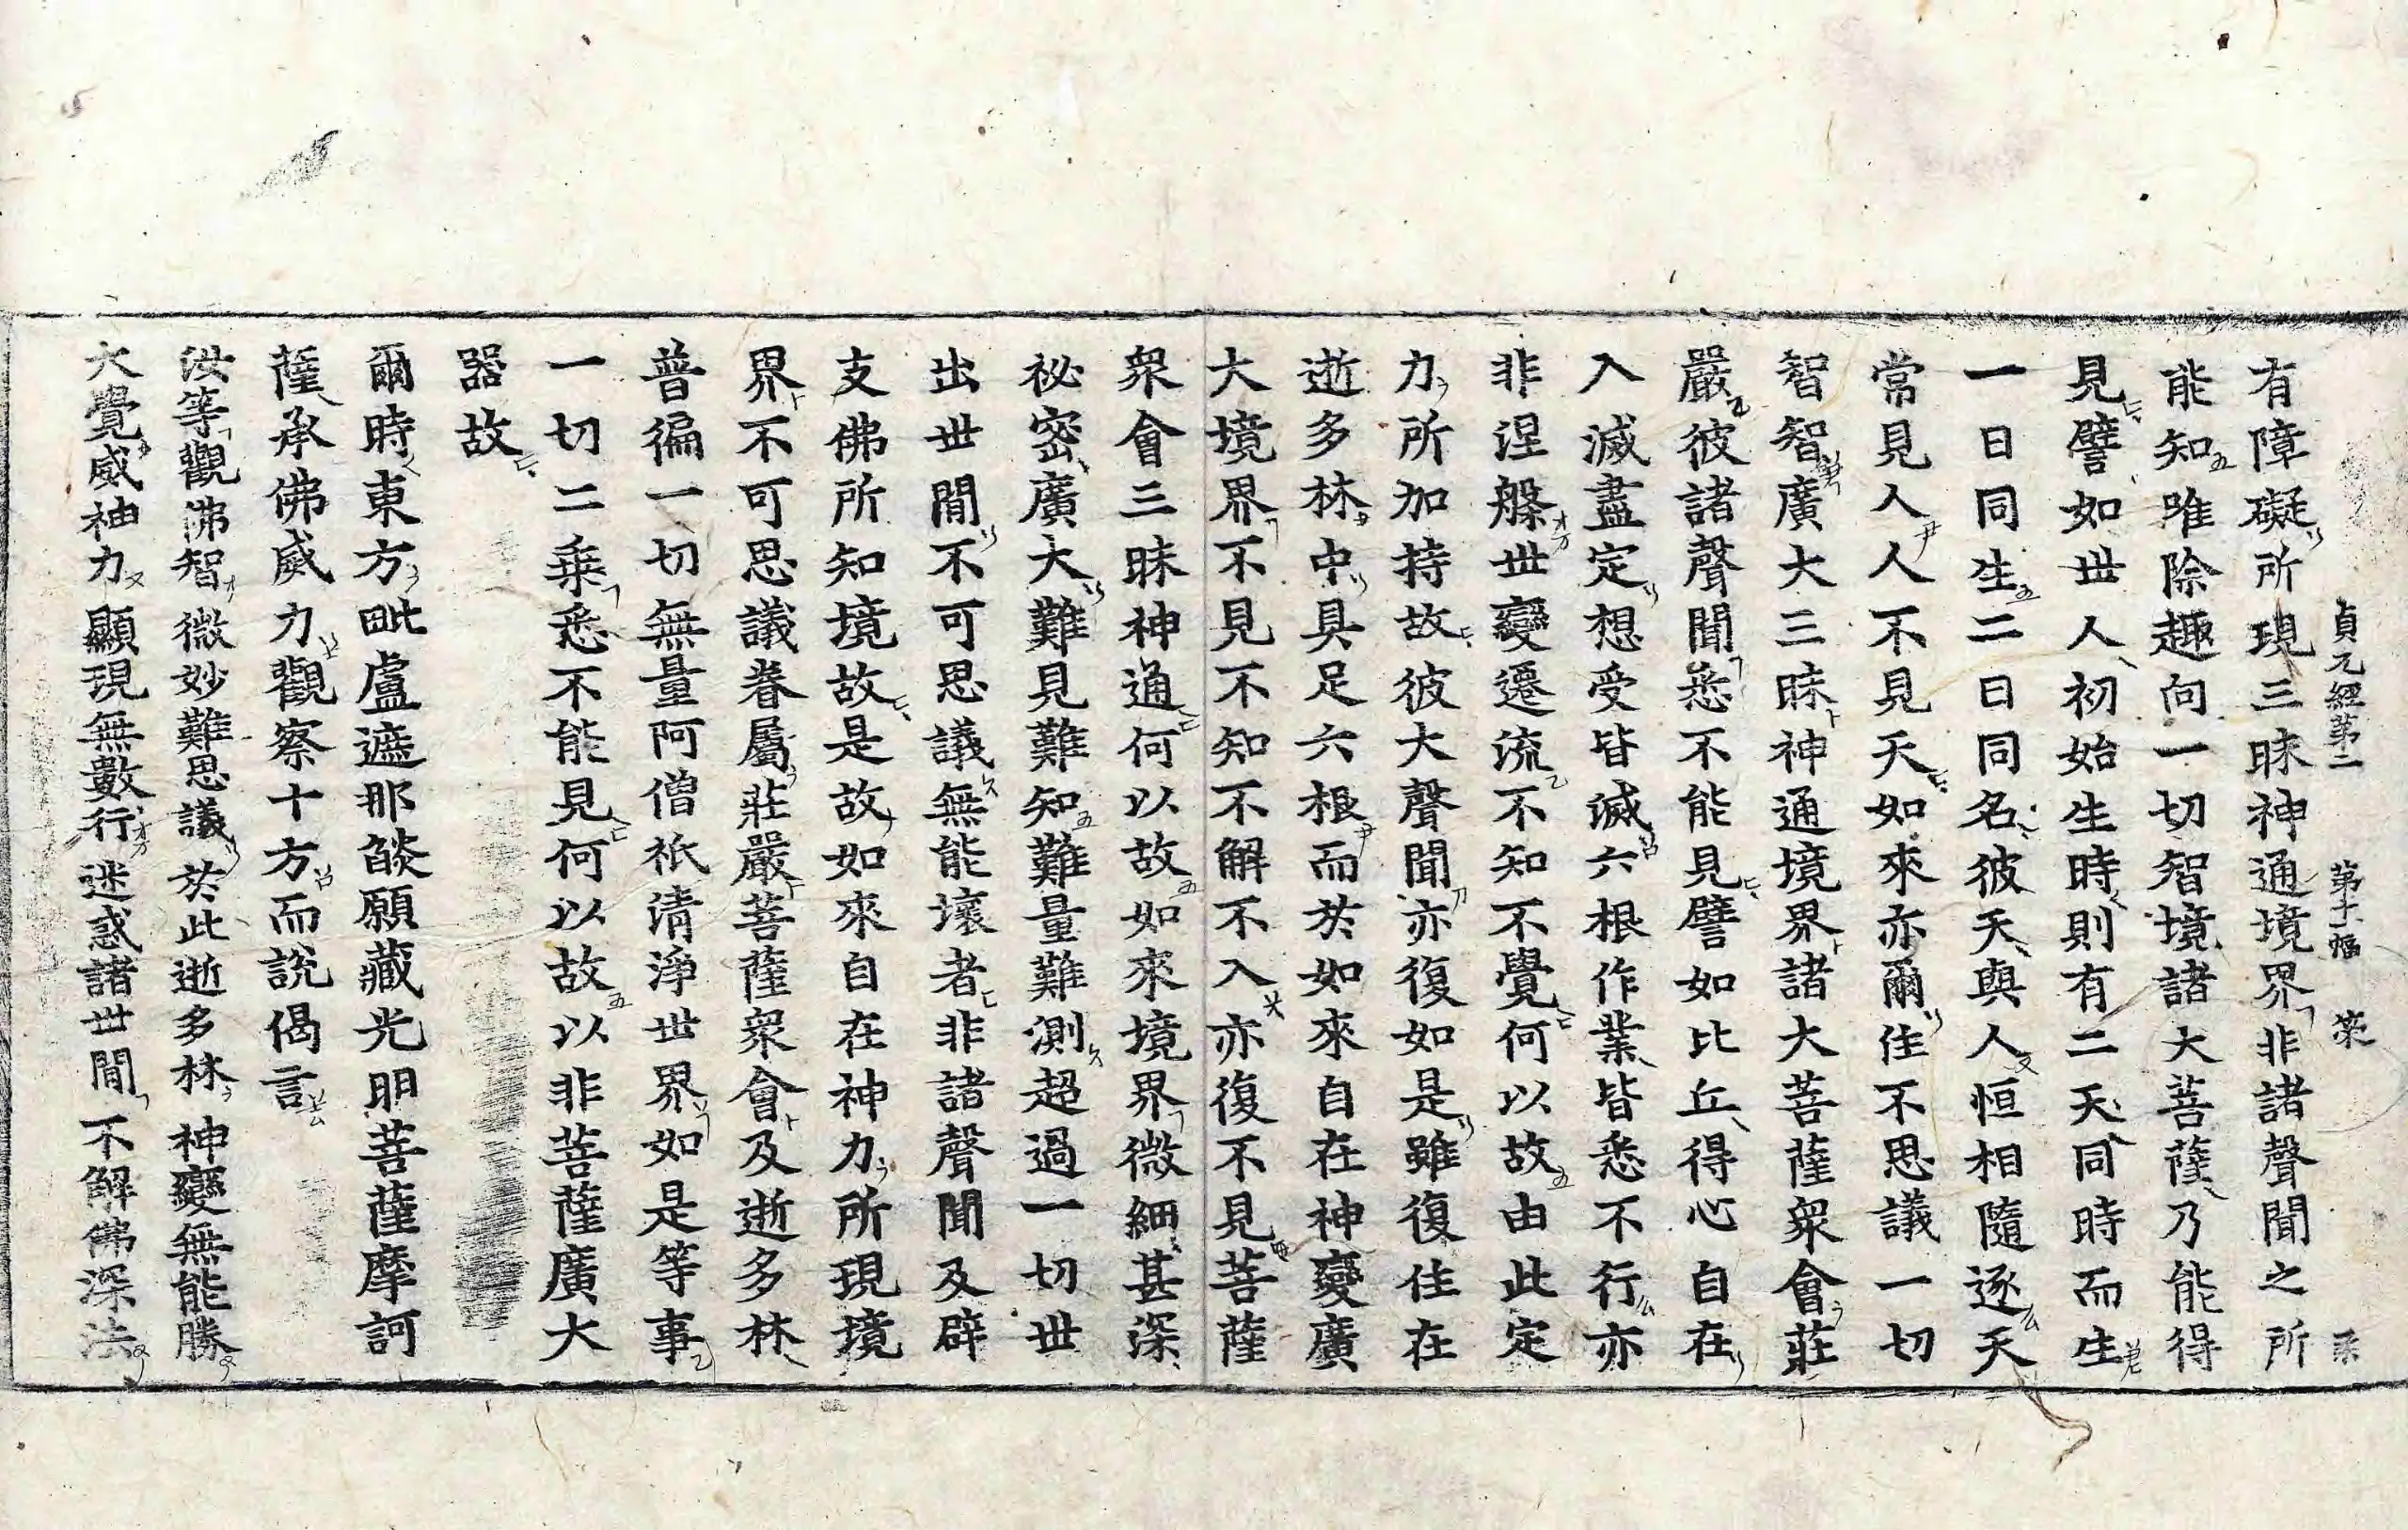 貞元經第二 第十一幅 策
有障礙所現三昧神通境界非諸聲聞之所
能知唯除趣向一切智境諸大菩薩乃能得
見譬如世人初始生時則有二天同時而生
一曰同生二曰同名彼天與人恒相隨逐天
常見人人不見天如來亦爾住不思議一切
智智廣大三昧神通境界諸大菩薩衆會莊
嚴彼諸聲聞悉不能見譬如比丘得心自在
入滅盡定想受皆滅六根作業皆悉不行亦
非涅槃世變遷流不知不覺何以故由此定
力所加持故彼大聲聞亦復如是雖復住在
逝多林中具足六根而於如來自在神變廣
大境界不見不知不解不入亦復不見菩薩
衆會三昧神通何以故如來境界微細甚深
祕密廣大難見難知難量難測超過一切世
出世間不可思議無能壞者非諸聲聞及辟
支佛所知境故是故如來自在神力所現境
界不可思議眷屬莊嚴菩薩衆會及逝多林
普徧一切無量阿僧祇清淨世界如是等事
一切二乘悉不能見何以故以非菩薩廣大
器故
爾時東方毗盧遮那燄願藏光明菩薩摩訶
薩承佛威力觀察十方而說偈言
汝等觀佛智 微妙難思議 於此逝多林 神變無能勝
大覺威神力 顯現無數行 迷惑諸世間 不解佛深法